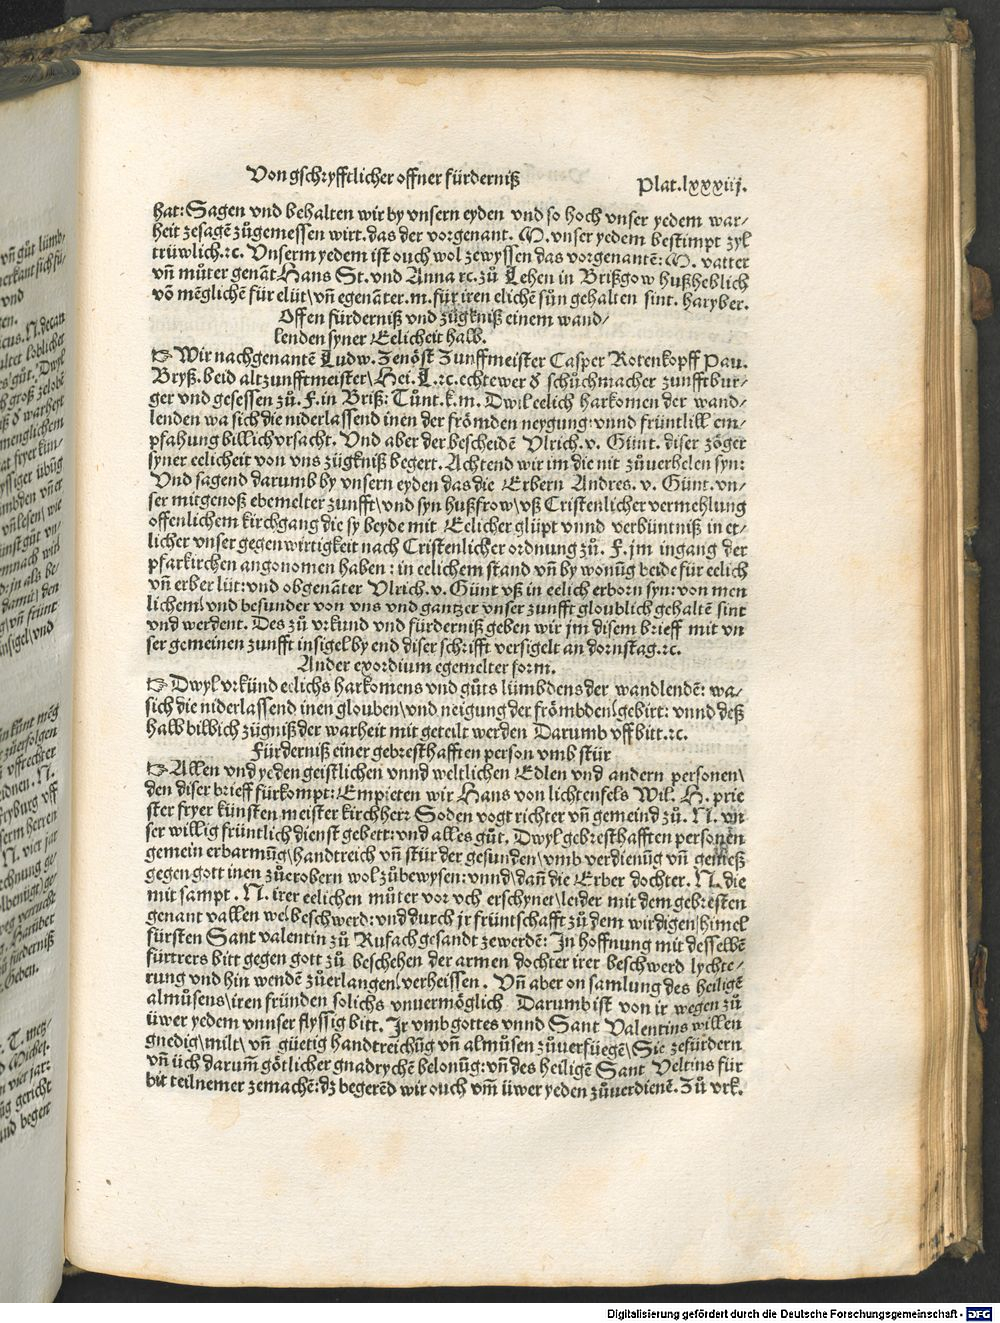 Von gschryfftlicher offner fürderniß
Plat.lxxxiij.
hat: Sagen vnd behalten wir by vnsern eyden vnd so hoch vnser yedem war-
heit zesagē zůgemessen wirt. das der vorgenant. M. vnser yedem bestimpt zyl
trüwlich.⁊c. Vnserm yedem ist ouch wol zewyssen das vorgenantē: M. vatter
vn̄ můter genāt Hans St. vnd Anna ⁊c. zů Lehen in Brißgow hußheblich
vō mēglichē für elüt/ vn̄ egenāter. m. für iren elichē sůn gehalten sint. haryber.
Offen fürderniß vnd zügkniß einem wand/
lenden syner Eelicheit halb.
☞ Wir nachgenantē Ludw. Zenöst Zunffmeister Casper Rotenkopff Pau.
Bryß. beid altzunfftmeister\ Hei. L.⁊c. echtewer δ schůchmacher zunfft bur-
ger vnd gesessen zů. F. in Briß: Tůnt. k. m. Dwil eelich harkomen der wand-
lenden wa sich die niderlassend inen der frömden neygung: vnnd früntlill em-
pfahung billich vrsacht. Vnd aber der bescheidē Vlrich. v. Günt. diser zöger
syner eelicheit von vns zügkniß begert. Achtend wir im die nit zůuerhelen syn:
Vnd sagend darumb by vnsern eyden das die Erbern Andres. v. Günt. vn-
ser mitgenoß ebemelter zunfft\ vnd syn hußfrow\ vß Cristenlicher vermehlung
offenlichem kirchgang die sy beyde mit Eelicher glüpt vnnd verbüntniß in et-
licher vnser gegenwirtigkeit nach Cristenlicher ordnung zů. F. jm ingang der
pfarkirchen angonomen haben: in eelichem stand vn̄ by wonūg beide für eelich
vn̄ erber lüt: vnd obgenāter Vlrich. v. Günt vß in eelich erborn syn: von men
lichem\ vnd besunder von vns vnd gantzer vnser zunfft gloublich gehaltē sint
vnd werdent. Des zů vrkund vnd fürderniß geben wir jm disem brieff mit vn
ser gemeinen zunfft insigel by end diser schrifft versigelt an dornstag.⁊c.
Ander exordium egemelter form.
☞ Dwyl vrkünd eelichs harkomens vnd gůts lümbdens der wandlendē: wa-
sich die niderlassend inen glouben\ vnd neigung der frömbden\ gebirt: vnnd deß
halb bilbich zügniß der warheit mit geteilt werden Darumb vff bitt.⁊c.
Fürderniß einer gebresthafften person vmb stür
☞ Allen vnd yeden geistlichen vnnd weltlichen Edlen vnd andern personen\
den diser brieff fürkompt: Empieten wir Hans von lichtenfels Wil. H. prie
ster fryer künsten meister kirchherr Soden vogt richter vn̄ gemeind zů. N. vn
ser willig früntlich dienst gebett: vnd alles gůt. Dwyl gebresthafften personen
gemein erbarmūg\ handtreich vn̄ stür der gesunden\ vmb verdienūg vn̄ genieß
gegen gott inen zůerobern wol zůbewysen: vnnd\ dan̄ die Erber dochter. N. die
mit sampt. N. irer eelichen můter vor vch erschynet\ leider mit dem gebresten
genant vallen we\ beschwerd: vnd durch jr früntschafft zů dem wirdigen\ himel
fürsten Sant valentin zů Rufach gesandt zewerdē: In hoffnung mit desselbē
fürtrers bitt gegen gott zů beschehen der armen dochter irer beschwerd lychte-
rung vnd hin wendē zůerlangen\ verheissen. Vn̄ aber on samlung des heiligē
almůsens\ iren fründen solichs vnuermöglich Darumb ist von ir wegen zů
üwer yedem vnnser flyssig bitt. Ir vmb gottes vnnd Sant Valentins willen
gnedig\ milt\ vn̄ güetig handtreichūg vn̄ almůsen zůuerfüegē\ Sie zefürdern
vn̄ üch darum̄ götlicher gnadrychē belonūg: vn̄ des heiligē Sant Veltins für
bit teilnemer zemachē: dz begerēd wir ouch vm̄ üwer yeden zůuerdienē. Zů vrk.
Digitalisierung gefördert durch die Deutsche Forschungsgemeinschaft - DFG